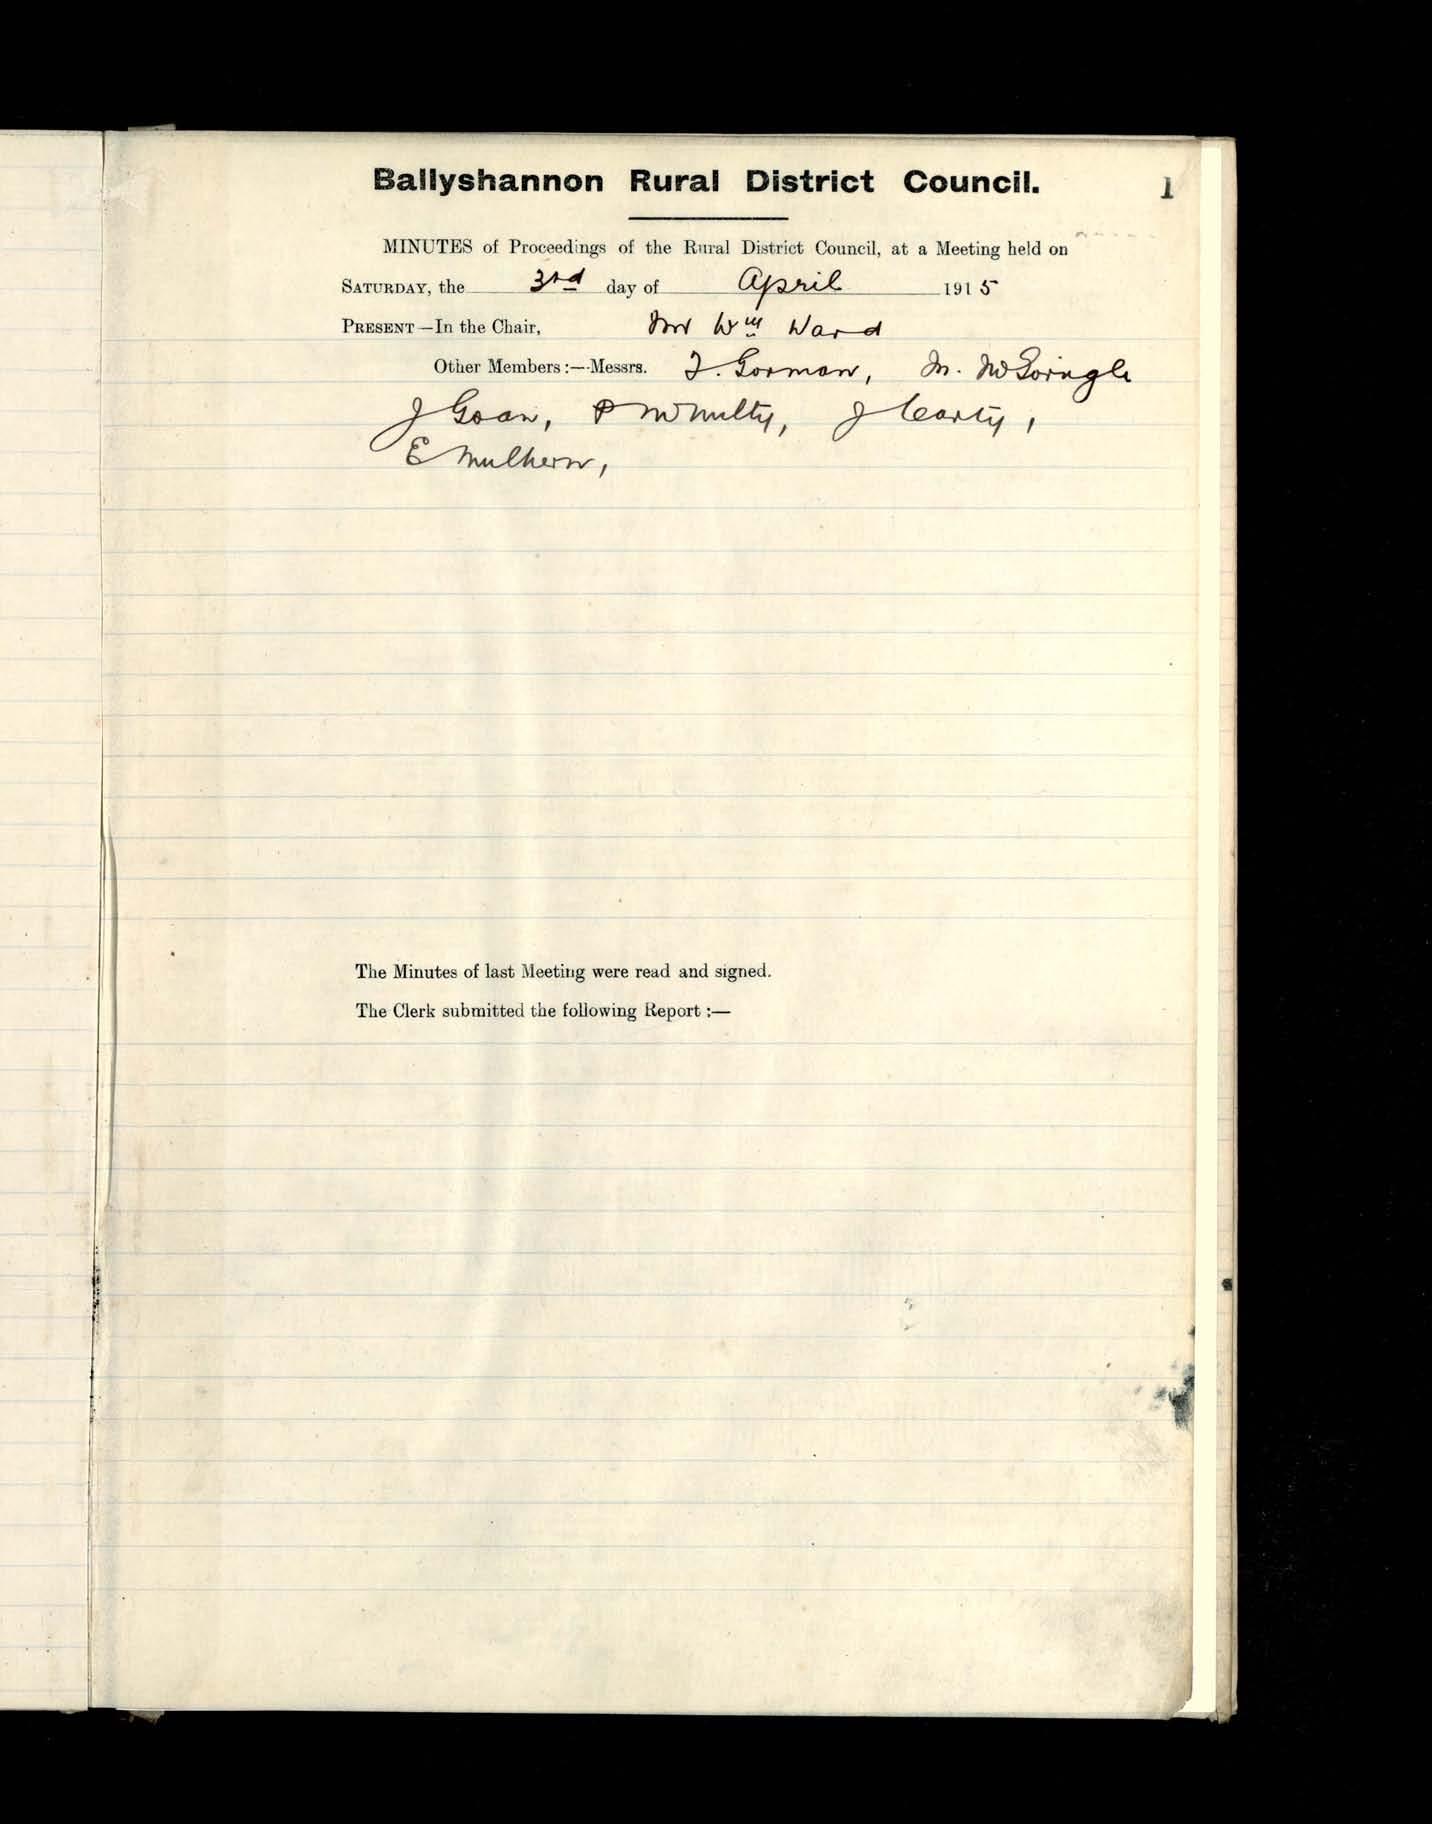 Ballyshannon Rural District Council. 1
MINUTES of Proceedings of the Rural District Council, at a Meeting held on
SATURDAY, the 3rd day of April 1915
PRESENT—In the Chair, Mr Wm Ward
Other Members:—Messrs. T. Gorman, M. McGoingle
J Goan, P McNulty, J Carty,
E Mulhern,
The Minutes of last Meeting were read and signed.
The Clerk submitted the following Report :—